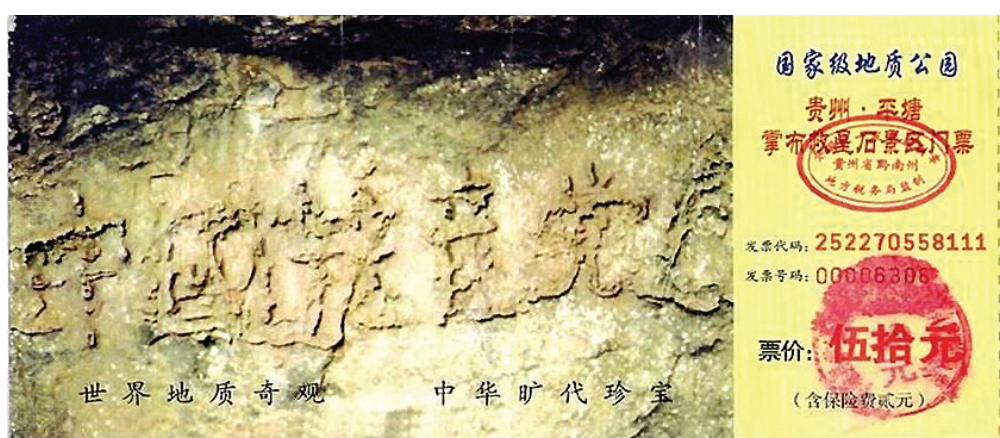 中國共産党亡
世界地质奇观
中华旷代珍宝
国家级地质公园
贵州·平塘
掌布救星石景区门票
贵州省黔南州
地方税务局监制
发票代码：252270558111
发票号码：00006306
票价：伍拾元
（含保险费贰元）